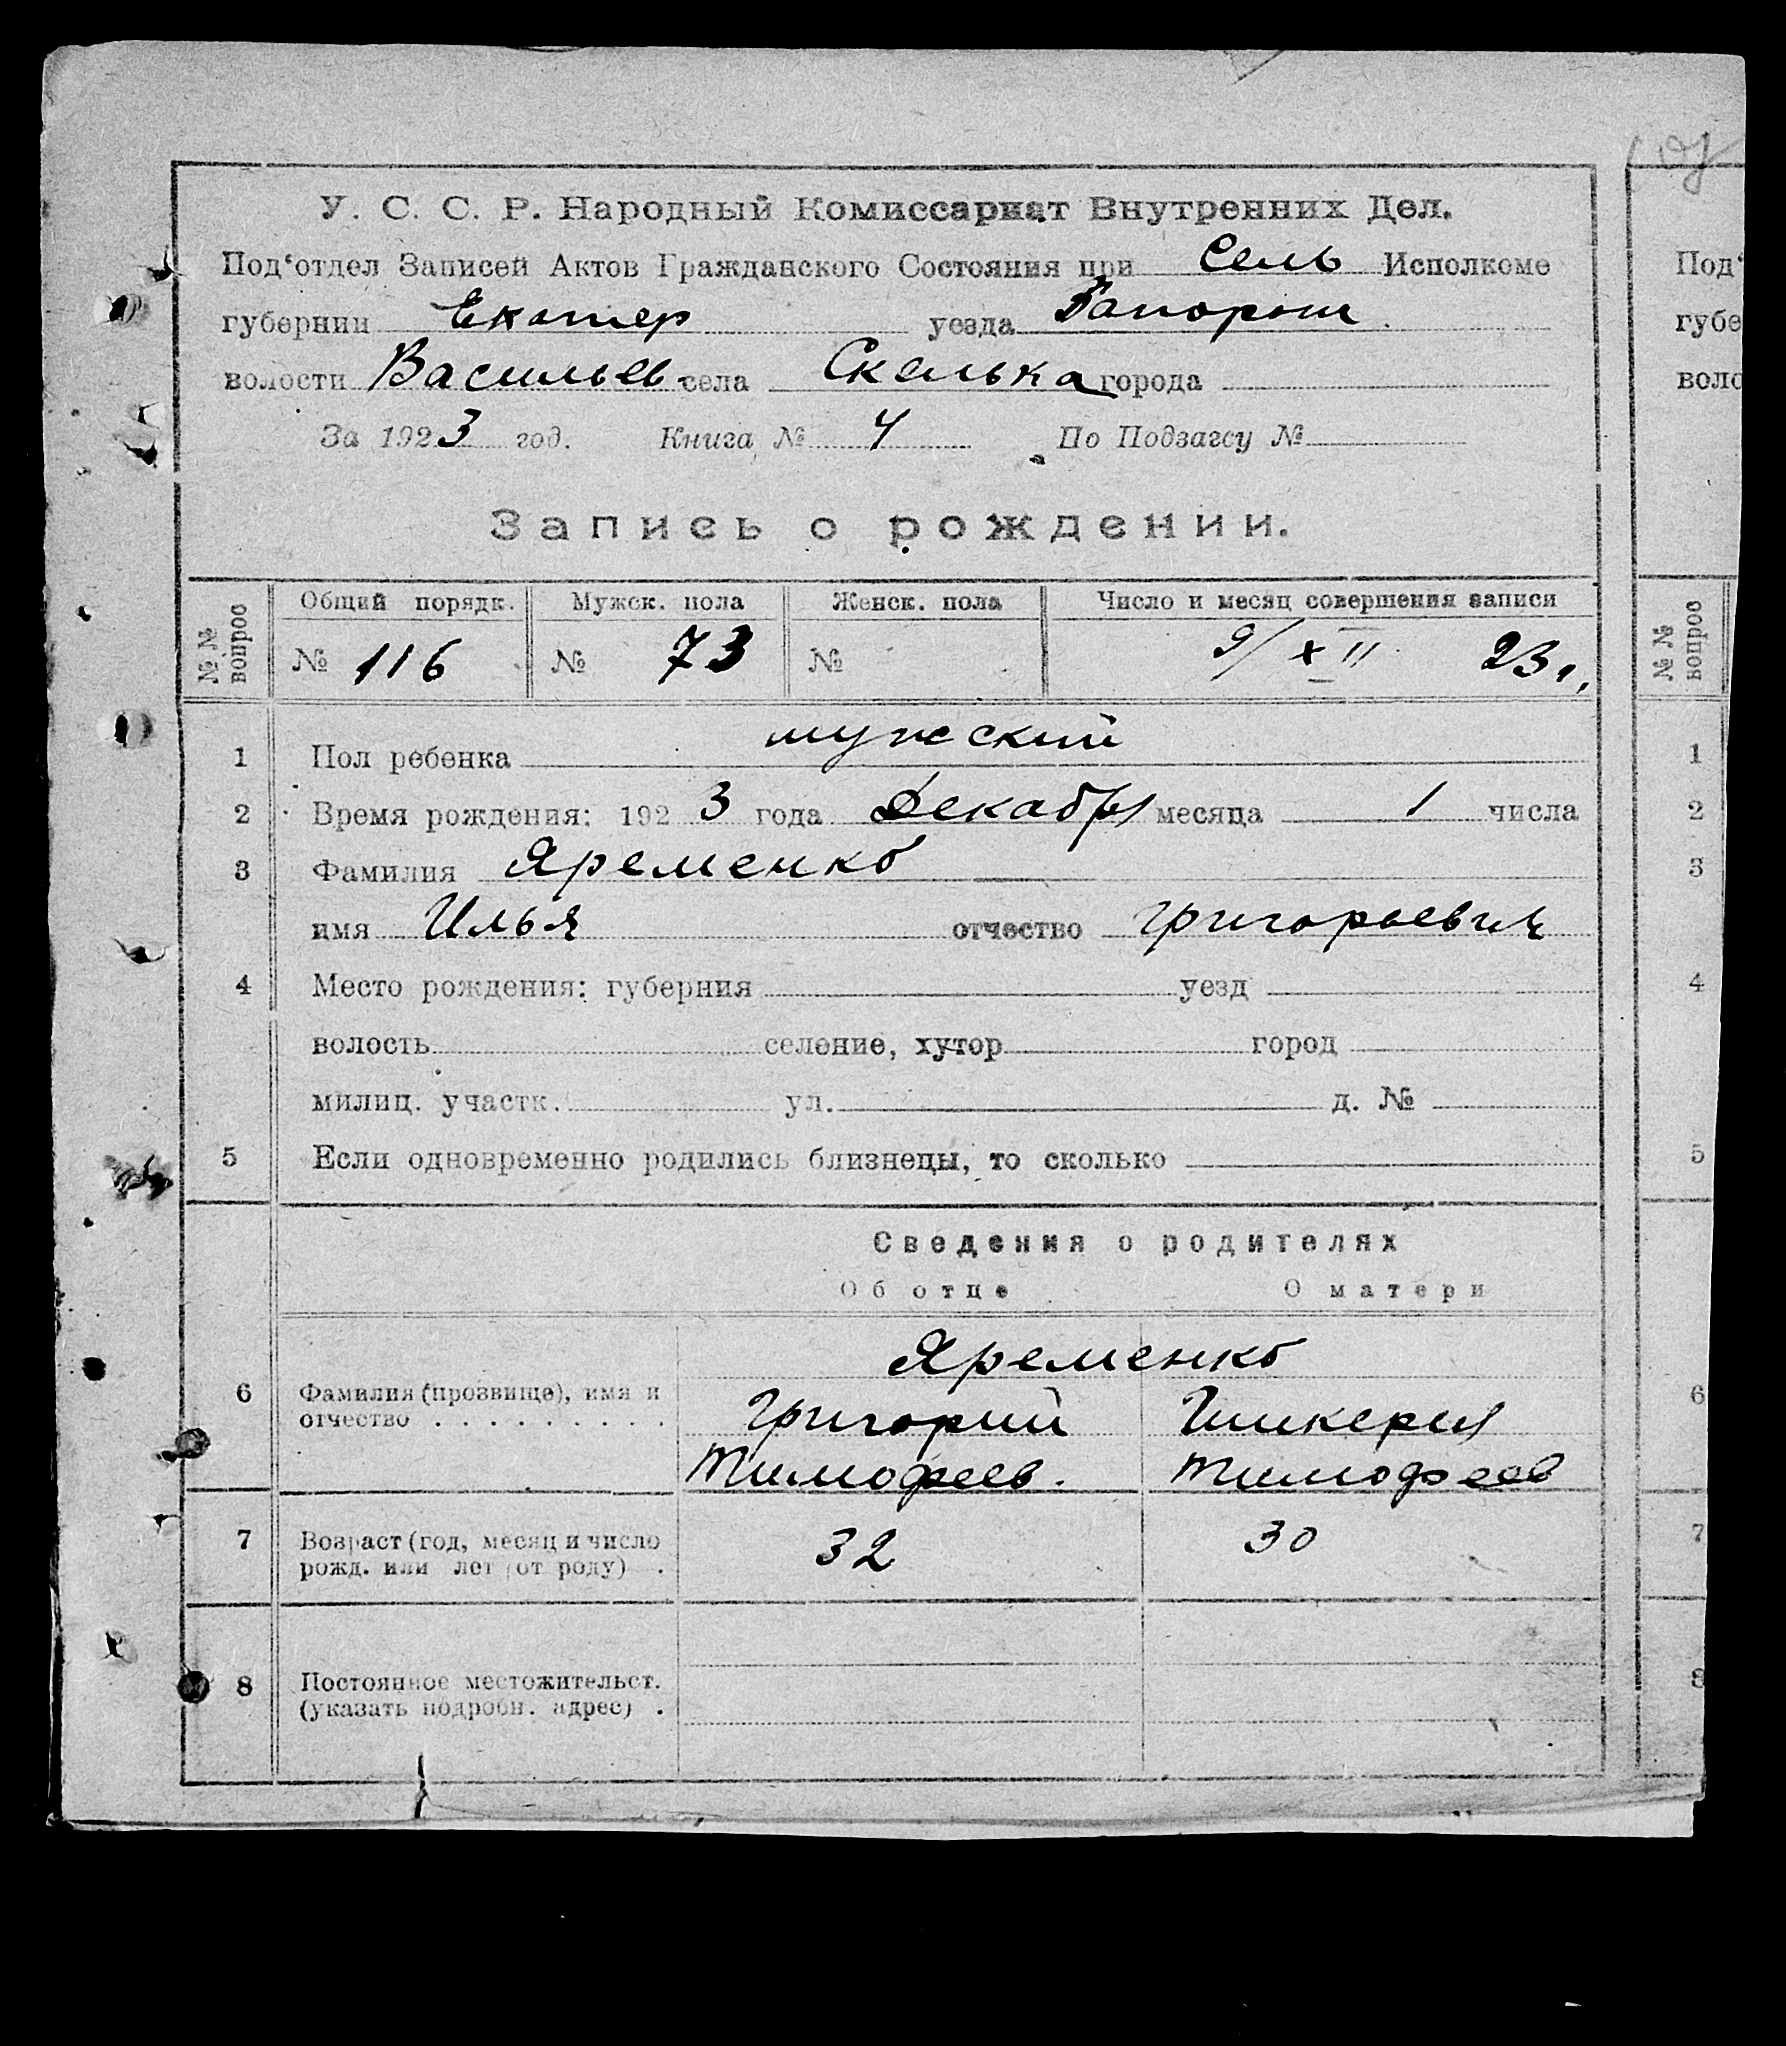 У. С. С. Р. Народный Комиссариат Внутренних Дел.
Под‘отдел Записей Актов Гражданского Состояния при Сель Исполкоме
губернии Екатер уезда Запорож
волости Васильев села Скелька города
За 1923 год. Книга № 4 По Подзагсу №
Запись о рождении.
№№ вопрос Общий порядк. Мужск. пола Женск. пола Число и месяц совершения записи
№ 116 № 73 № 9/XII 23 г.
1 Пол ребенка мужский
2 Время рождения: 1923 года Декабря месяца 1 числа
3 Фамилия Яременко
имя Илья отчество Григорьевич
4 Место рождения: губерния уезд
волость селение, хутор город
милиц. участк. ул. д. №
5 Если одновременно родились близнецы, то сколько
Сведения о родителях
Об отце О матери
Яременко
6 Фамилия (прозвище), имя и отчество . . . . . . . . . Григорий Гликерия
Тимофеев. Тимофеев
7 Возраст (год, месяц и число рожд. или лет от роду) . 32 30
8 Постоянное местожительст. (указать подробн. адрес) .
Под‘
губе
воло
№№ вопрос
1
2
3
4
5
6
7
8